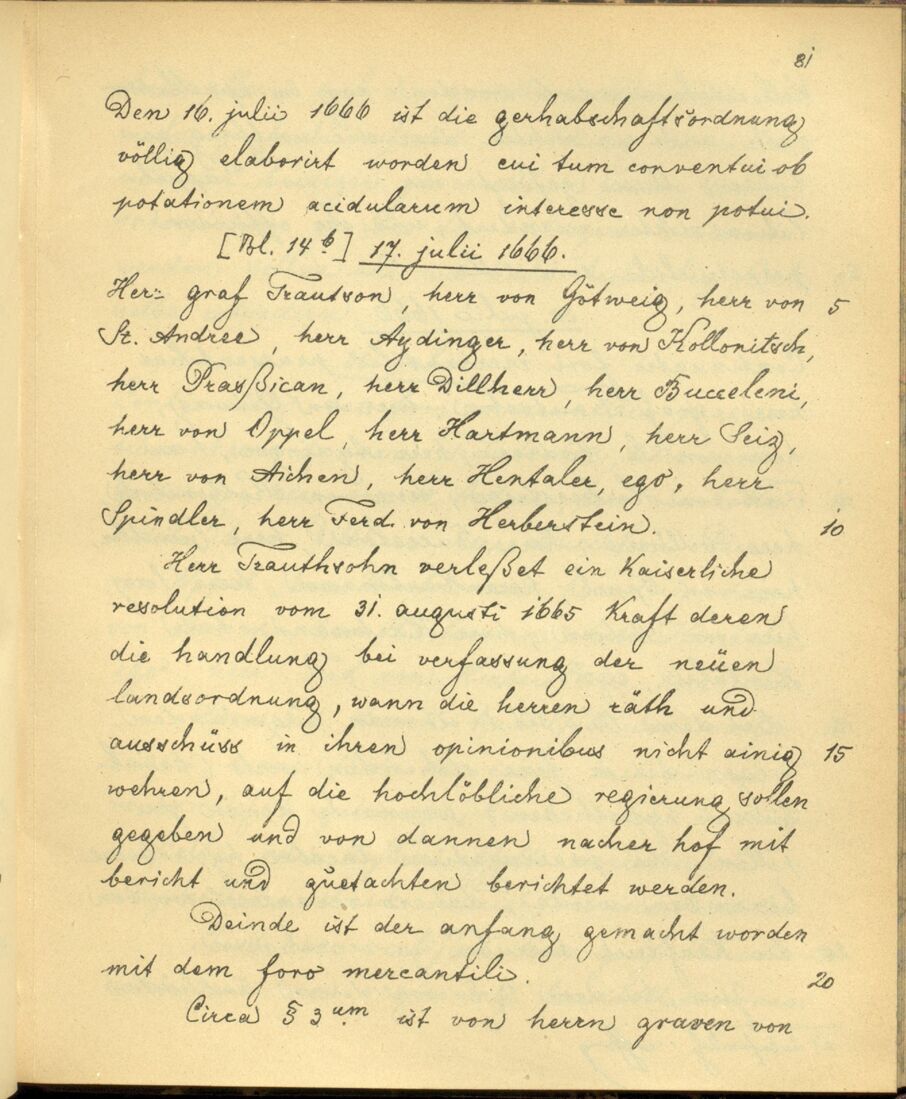 81
Den 16. julii 1666 ist die gerhabschaftsordnung
völlig elaborirt worden cui tum conventui ob
potationem acidularum interesse non potui.
[Bl. 14b] 17. julii 1666.
Her: graf Trautson, herr von Götweig, herr von 5
St. Andree, herr Aydinger, herr von Kollonitsch,
herr Prasßican, herr Dillherr, herr Bucceleni,
herr von Oppel, herr Hartmann, herr Seiz,
herr von Aichen, herr Hentaler, ego, herr
Spindler, herr Ferd. von Herberstein. 10
Herr Trauthsohn verleßet ein kaiserliche
resolution vom 31. augusti 1665 kraft deren
die handlung bei verfassung der neüen
landsordnung, wann die herren räth und
ausschüss in ihren opinionibus nicht ainig 15
wehren, auf die hochlöbliche regierung sollen
gegeben und von dannen nacher hof mit
bericht und guetachten berichtet werden.
Deinde ist der anfang gemacht worden
mit dem foro mercantili. 20
Circa § 3um ist von herrn graven von